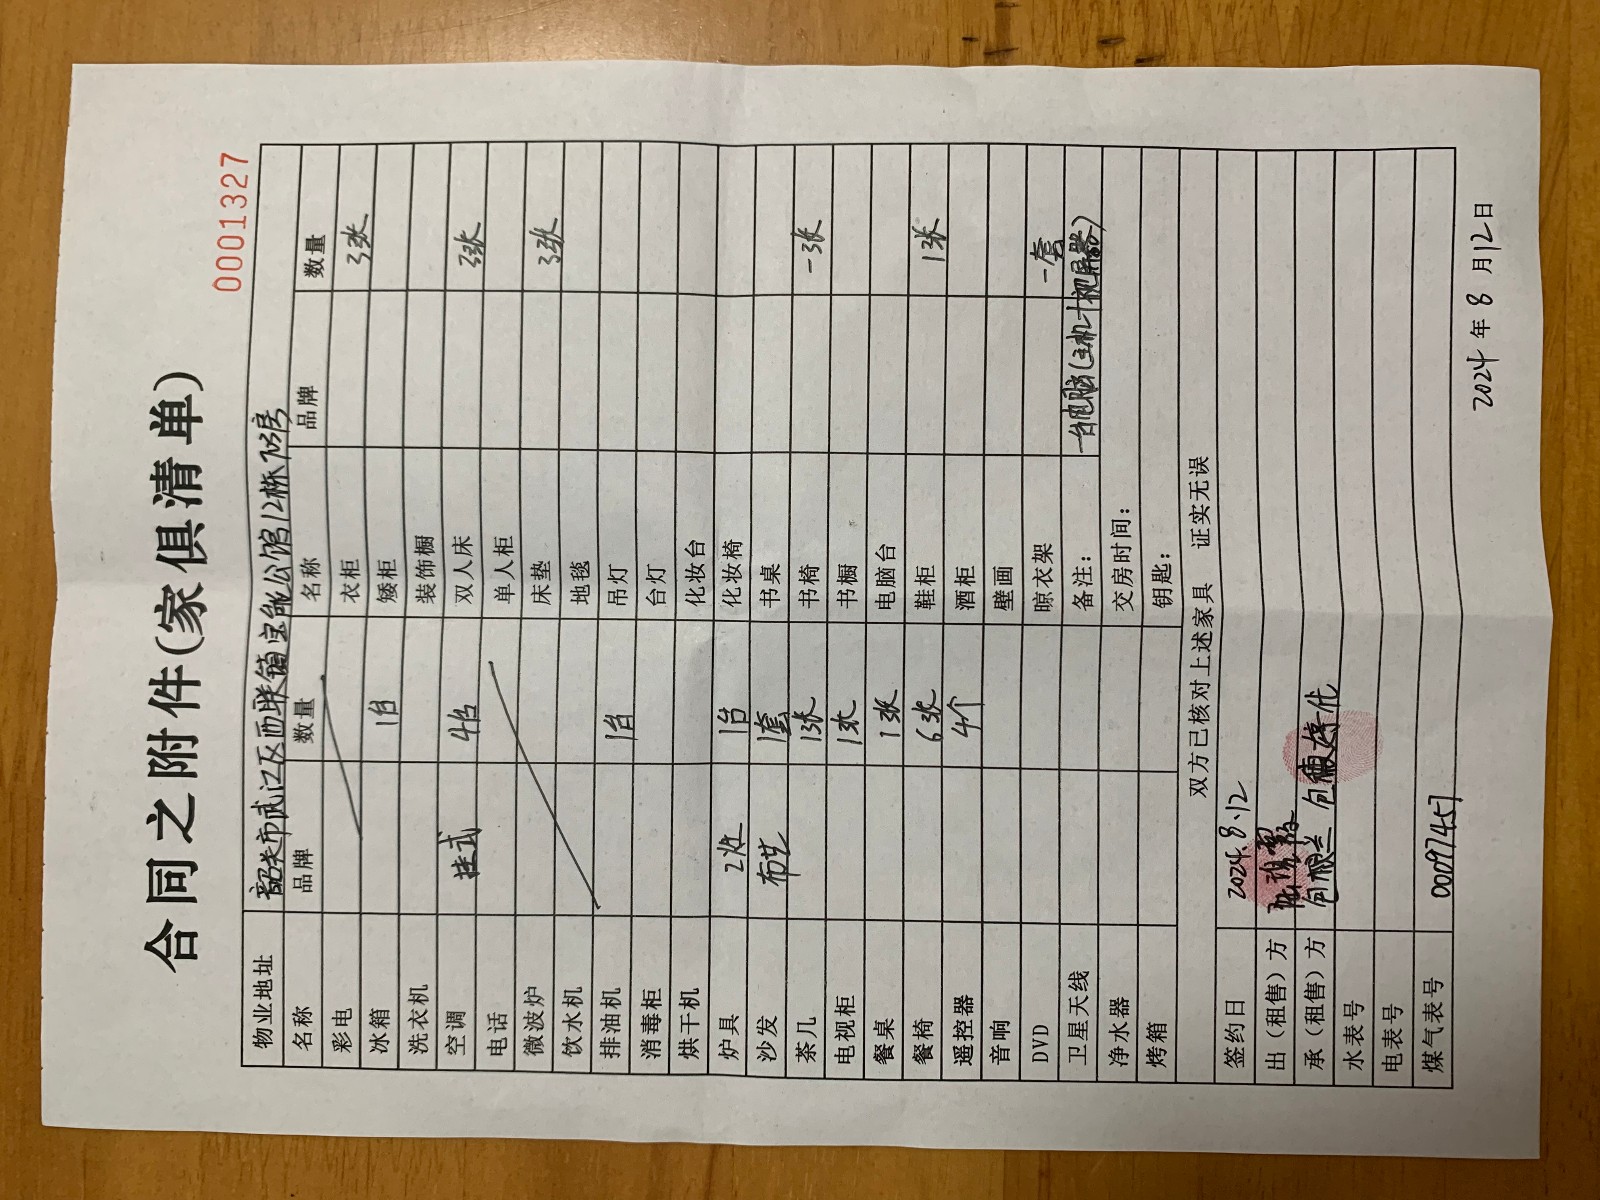 0001327
合同之附件(家俱清单)
物业地址 韶关市武江区西联镇宝能公馆12栋703房
名称 品牌 数量 名称 品牌 数量
彩电 衣柜 3张
冰箱 1台 矮柜
洗衣机 装饰橱
空调 挂式 4台 双人床 3张
电话 单人柜
微波炉 床垫 3张
饮水机 地毯
排油机 1台 吊灯
消毒柜 台灯
烘干机 化妆台
炉具 1台 化妆椅
沙发 布艺 1套 书桌
茶几 1张 书椅 一张
电视柜 1张 书橱
餐桌 1张 电脑台
餐椅 6张 鞋柜 1张
遥控器 4个 酒柜
音响 壁画
DVD 晾衣架 一套
卫星天线 备注: 一台电脑(主机+视屏器)
净水器 交房时间:
烤箱 钥匙:
双方已核对上述家具 证实无误
签约日 2024.8.12
出(租售)方
承(租售)方 包根兰 代
水表号
电表号
煤气表号 00097457
2024年8月12日